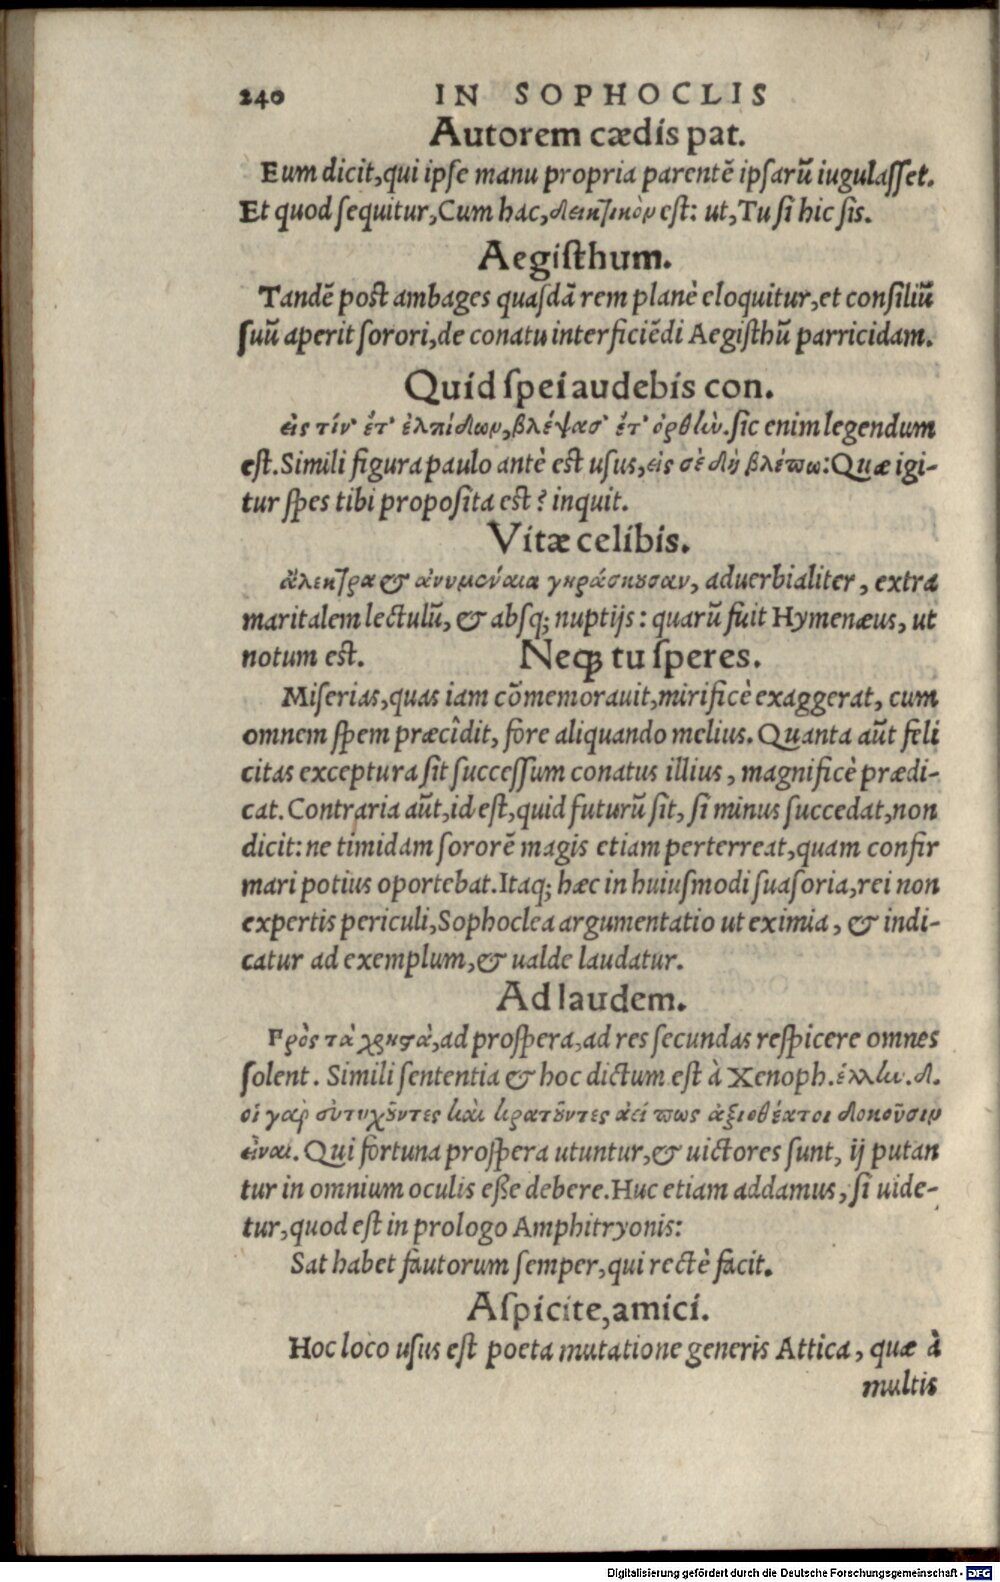 240 IN SOPHOCLIS
Autorem cædis pat.
Eum dicit, qui ipse manu propria parentē ipsarū iugulasset.
Et quod sequitur, Cum hac, δεικτικὸν est: ut, Tu si hic sis.
Aegisthum.
Tandē post ambages quasdā rem planè eloquitur, et consiliū
suū aperit sorori, de conatu interficiēdi Aegisthū parricidam.
Quid spei audebis con.
εἰς τίν' ἔτ' ἐλπίδων, βλέψασ' ἔτ' ὀρθὼ. sic enim legendum
est. Simili figura paulo antè est usus, εἰς σὲ δὴ βλέπω: Quæ igi-
tur spes tibi proposita est? inquit.
Vitæ celibis.
ἄλεκτρα & ἀνυμέναια γηράσκουσαν, aduerbialiter, extra
maritalem lectulū, & absq; nuptijs: quarū fuit Hymenæus, ut
notum est. Neq; tu speres.
Miserias, quas iam cōmemorauit, mirificè exaggerat, cum
omnem spem præcîdit, fore aliquando melius. Quanta aūt feli
citas exceptura sit successum conatus illius, magnificè prædi-
cat. Contraria aūt, id est, quid futurū sit, si minus succedat, non
dicit: ne timidam sororē magis etiam perterreat, quam confir
mari potius oportebat. Itaq; hæc in huiusmodi suasoria, rei non
expertis periculi, Sophoclea argumentatio ut eximia, & indi-
catur ad exemplum, & ualde laudatur.
Ad laudem.
Πρὸς τὰ χρηστὰ, ad prospera, ad res secundas respicere omnes
solent. Simili sententia & hoc dictum est à Xenoph. ἑλλην. δ.
οἱ γὰρ εὐτυχοῦντες καὶ κρατοῦντες ἀεί πως ἀξιοθέατοι δοκοῦσιν
εἶναι. Qui fortuna prospera utuntur, & uictores sunt, ij putan
tur in omnium oculis eße debere. Huc etiam addamus, si uide-
tur, quod est in prologo Amphitryonis:
Sat habet fautorum semper, qui rectè facit.
Aspicite, amici.
Hoc loco usus est poeta mutatione generis Attica, quæ à
multis
Digitalisierung gefördert durch die Deutsche Forschungsgemeinschaft - DFG